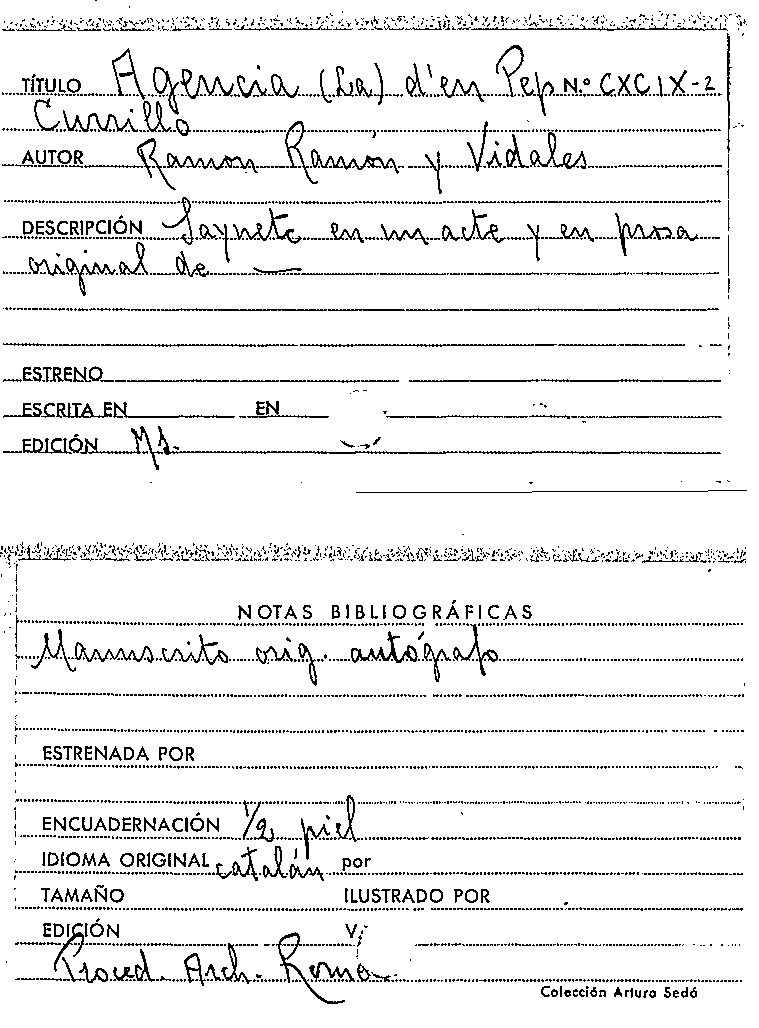 TÍTULO Agencia (La) d'en Pep N.º CXCIX-2
Currillo
AUTOR Ramon Ramón y Vidales
DESCRIPCIÓN Saynete en un acte y en prosa
original de —
ESTRENO
ESCRITA EN EN
EDICIÓN Ms.
NOTAS BIBLIOGRÁFICAS
Manuscrito orig. autógrafo
ESTRENADA POR
ENCUADERNACIÓN 1/2 piel
IDIOMA ORIGINAL catalán por
TAMAÑO ILUSTRADO POR
EDICIÓN V
Proced. Arch. Roma
Colección Arturo Sedó